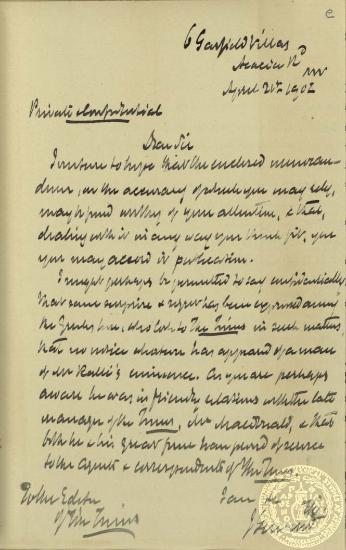 6 Garfield Villas
Acacia Rd
NW
April 21st 1902
Private & Confidential
Dear Sir
I venture to hope that the enclosed memoran-
dum, on the accuracy of which you may rely,
may be found worthy of your attention, & that,
dealing with it in any way you think fit, you
may accord it publication.
I might perhaps be permitted to say confidentially
that some surprise & regret has been expressed among
the Greeks here, who look to the Times in such matters,
that no notice whatever has appeared of a man
of Mr Ralli's eminence. As you are perhaps
aware he was in friendly relations with the late
manager of the Times, Mr MacDonald, & that
both he & his great firm have been of service
to the agents & correspondents of the Times.
I am
To the Editor
of the Times